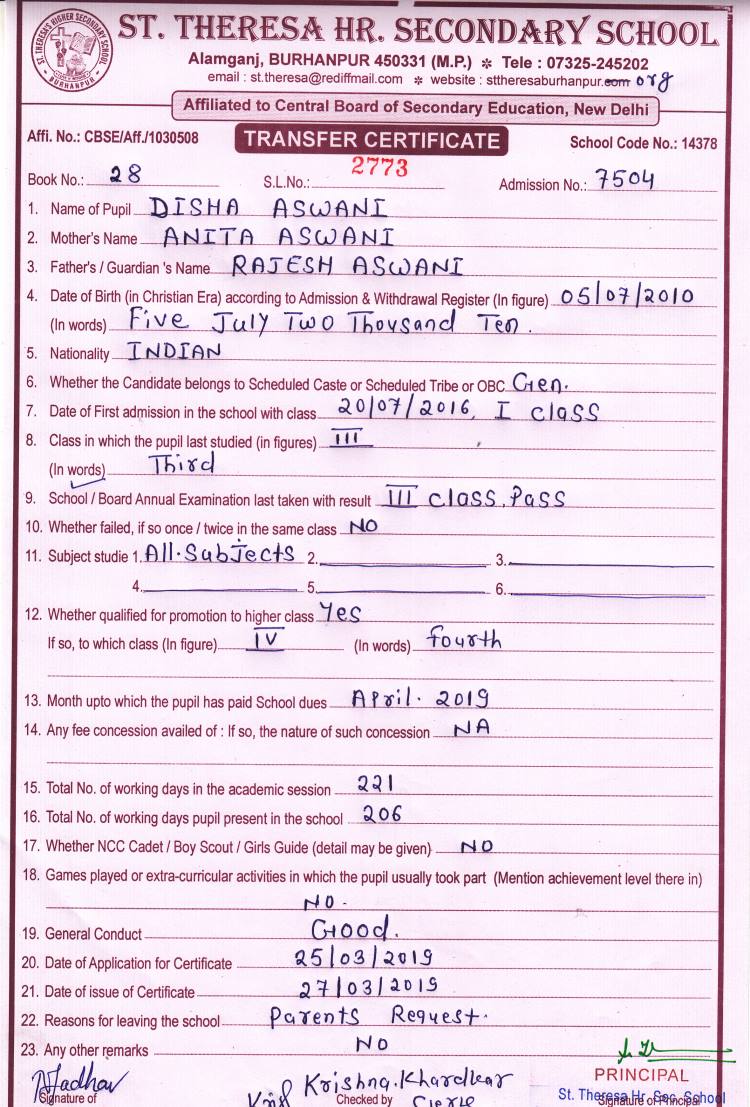 ST. THERESA HR. SECONDARY SCHOOL
Alamganj, BURHANPUR 450331 (M.P.) * Tele : 07325-245202
email : st.theresa@rediffmail.com * website : sttheresaburhanpur.com org
Affiliated to Central Board of Secondary Education, New Delhi
Affi. No.: CBSE/Aff./1030508 TRANSFER CERTIFICATE School Code No.: 14378
Book No.: 28 S.L.No.: 2773 Admission No.: 7504
1. Name of Pupil DISHA ASWANI
2. Mother's Name ANITA ASWANI
3. Father's / Guardian 's Name RAJESH ASWANI
4. Date of Birth (in Christian Era) according to Admission & Withdrawal Register (In figure) 05/07/2010
(In words) Five July Two Thousand Ten.
5. Nationality INDIAN
6. Whether the Candidate belongs to Scheduled Caste or Scheduled Tribe or OBC Gen.
7. Date of First admission in the school with class 20/07/2016, I class
8. Class in which the pupil last studied (in figures) III
(In words) Third
9. School / Board Annual Examination last taken with result III class, Pass
10. Whether failed, if so once / twice in the same class NO
11. Subject studie 1. All. Subjects 2. 3.
4. 5. 6.
12. Whether qualified for promotion to higher class Yes
If so, to which class (In figure) IV (In words) fourth
13. Month upto which the pupil has paid School dues April. 2019
14. Any fee concession availed of : If so, the nature of such concession NA
15. Total No. of working days in the academic session 221
16. Total No. of working days pupil present in the school 206
17. Whether NCC Cadet / Boy Scout / Girls Guide (detail may be given) NO
18. Games played or extra-curricular activities in which the pupil usually took part (Mention achievement level there in)
NO.
19. General Conduct Good.
20. Date of Application for Certificate 25/03/2019
21. Date of issue of Certificate 27/03/2019
22. Reasons for leaving the school Parents Request.
23. Any other remarks NO
PRINCIPAL
Krishna. Khardkar
St. Theresa Hr. Sec. School
Signature of Checked by Clerk Signature of Principal